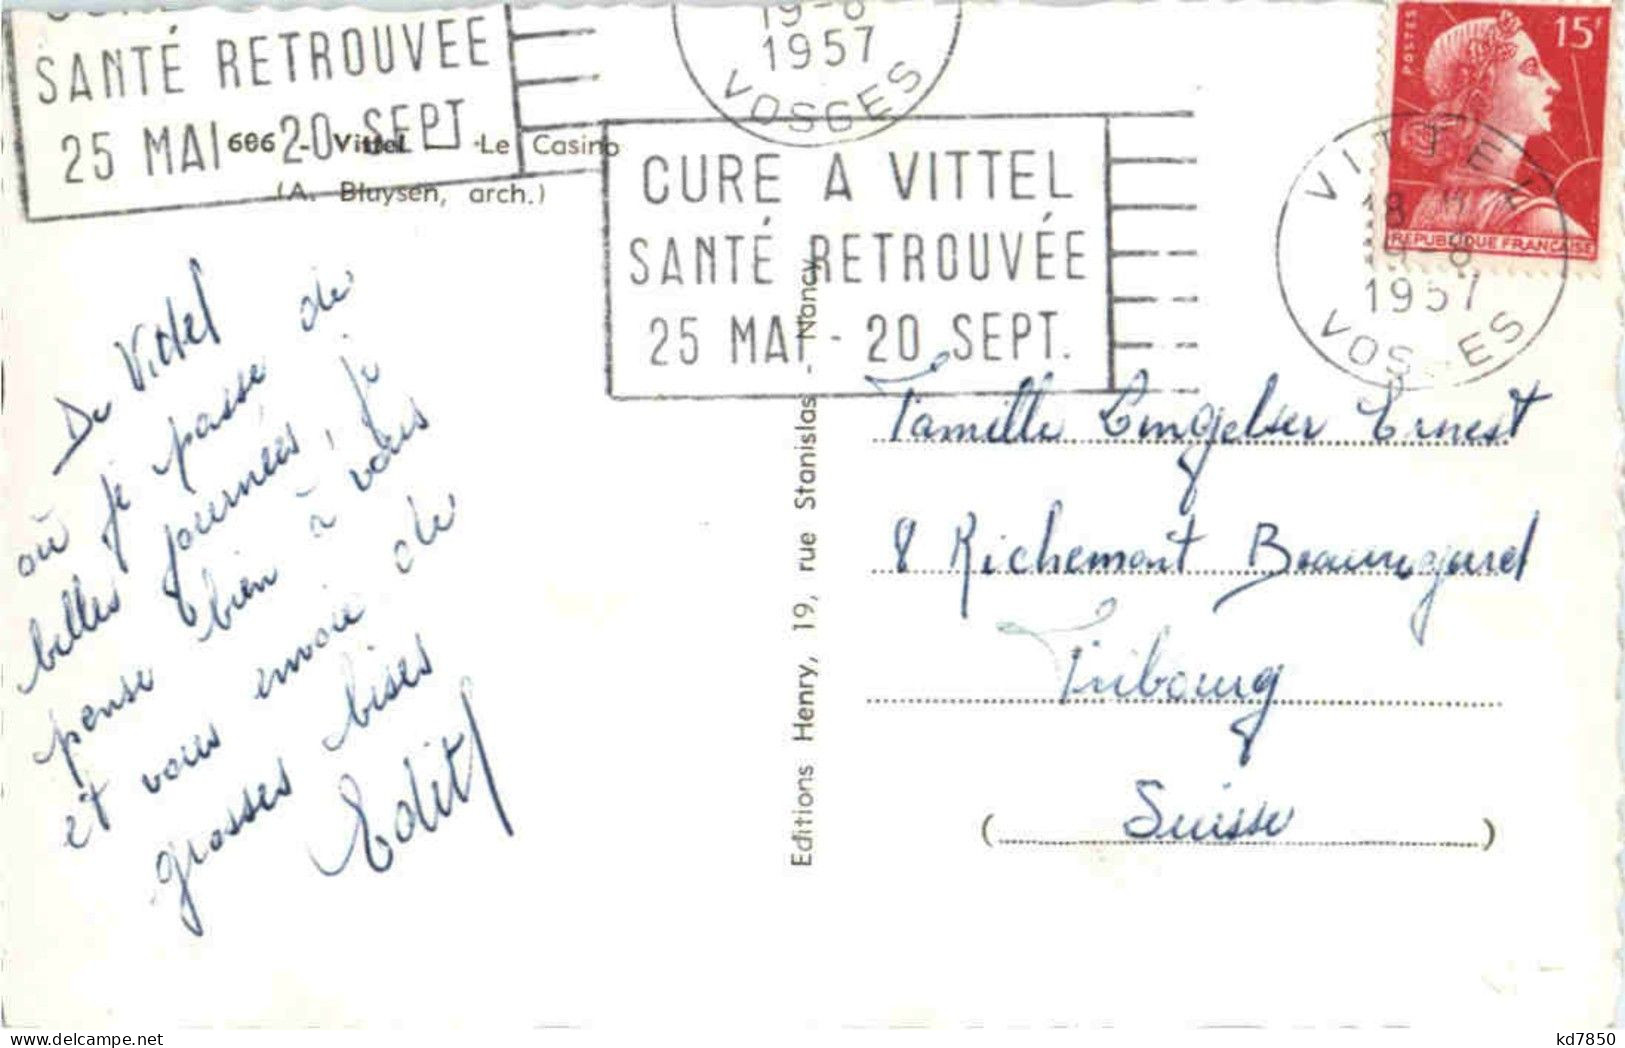 SANTÉ RETROUVÉE
25 MAI - 20 SEPT.
19-8
1957
VOSGES
606 - Vittel - Le Casino
(A. Bluysen, arch.)
CURE A VITTEL
SANTÉ RETROUVÉE
25 MAI - 20 SEPT.
POSTES
15F
REPUBLIQUE FRANÇAISE
VITTEL
18 H
1957
VOSGES
De Vittel
où je passe de
belles journées, je
pense bien à vous
et vous envoie de
grosses bises
Edith
Editions Henry, 19, rue Stanislas - Nancy
Famille Ernest
8 Richemont Beauregard
Fribourg
(Suisse)
kd7850